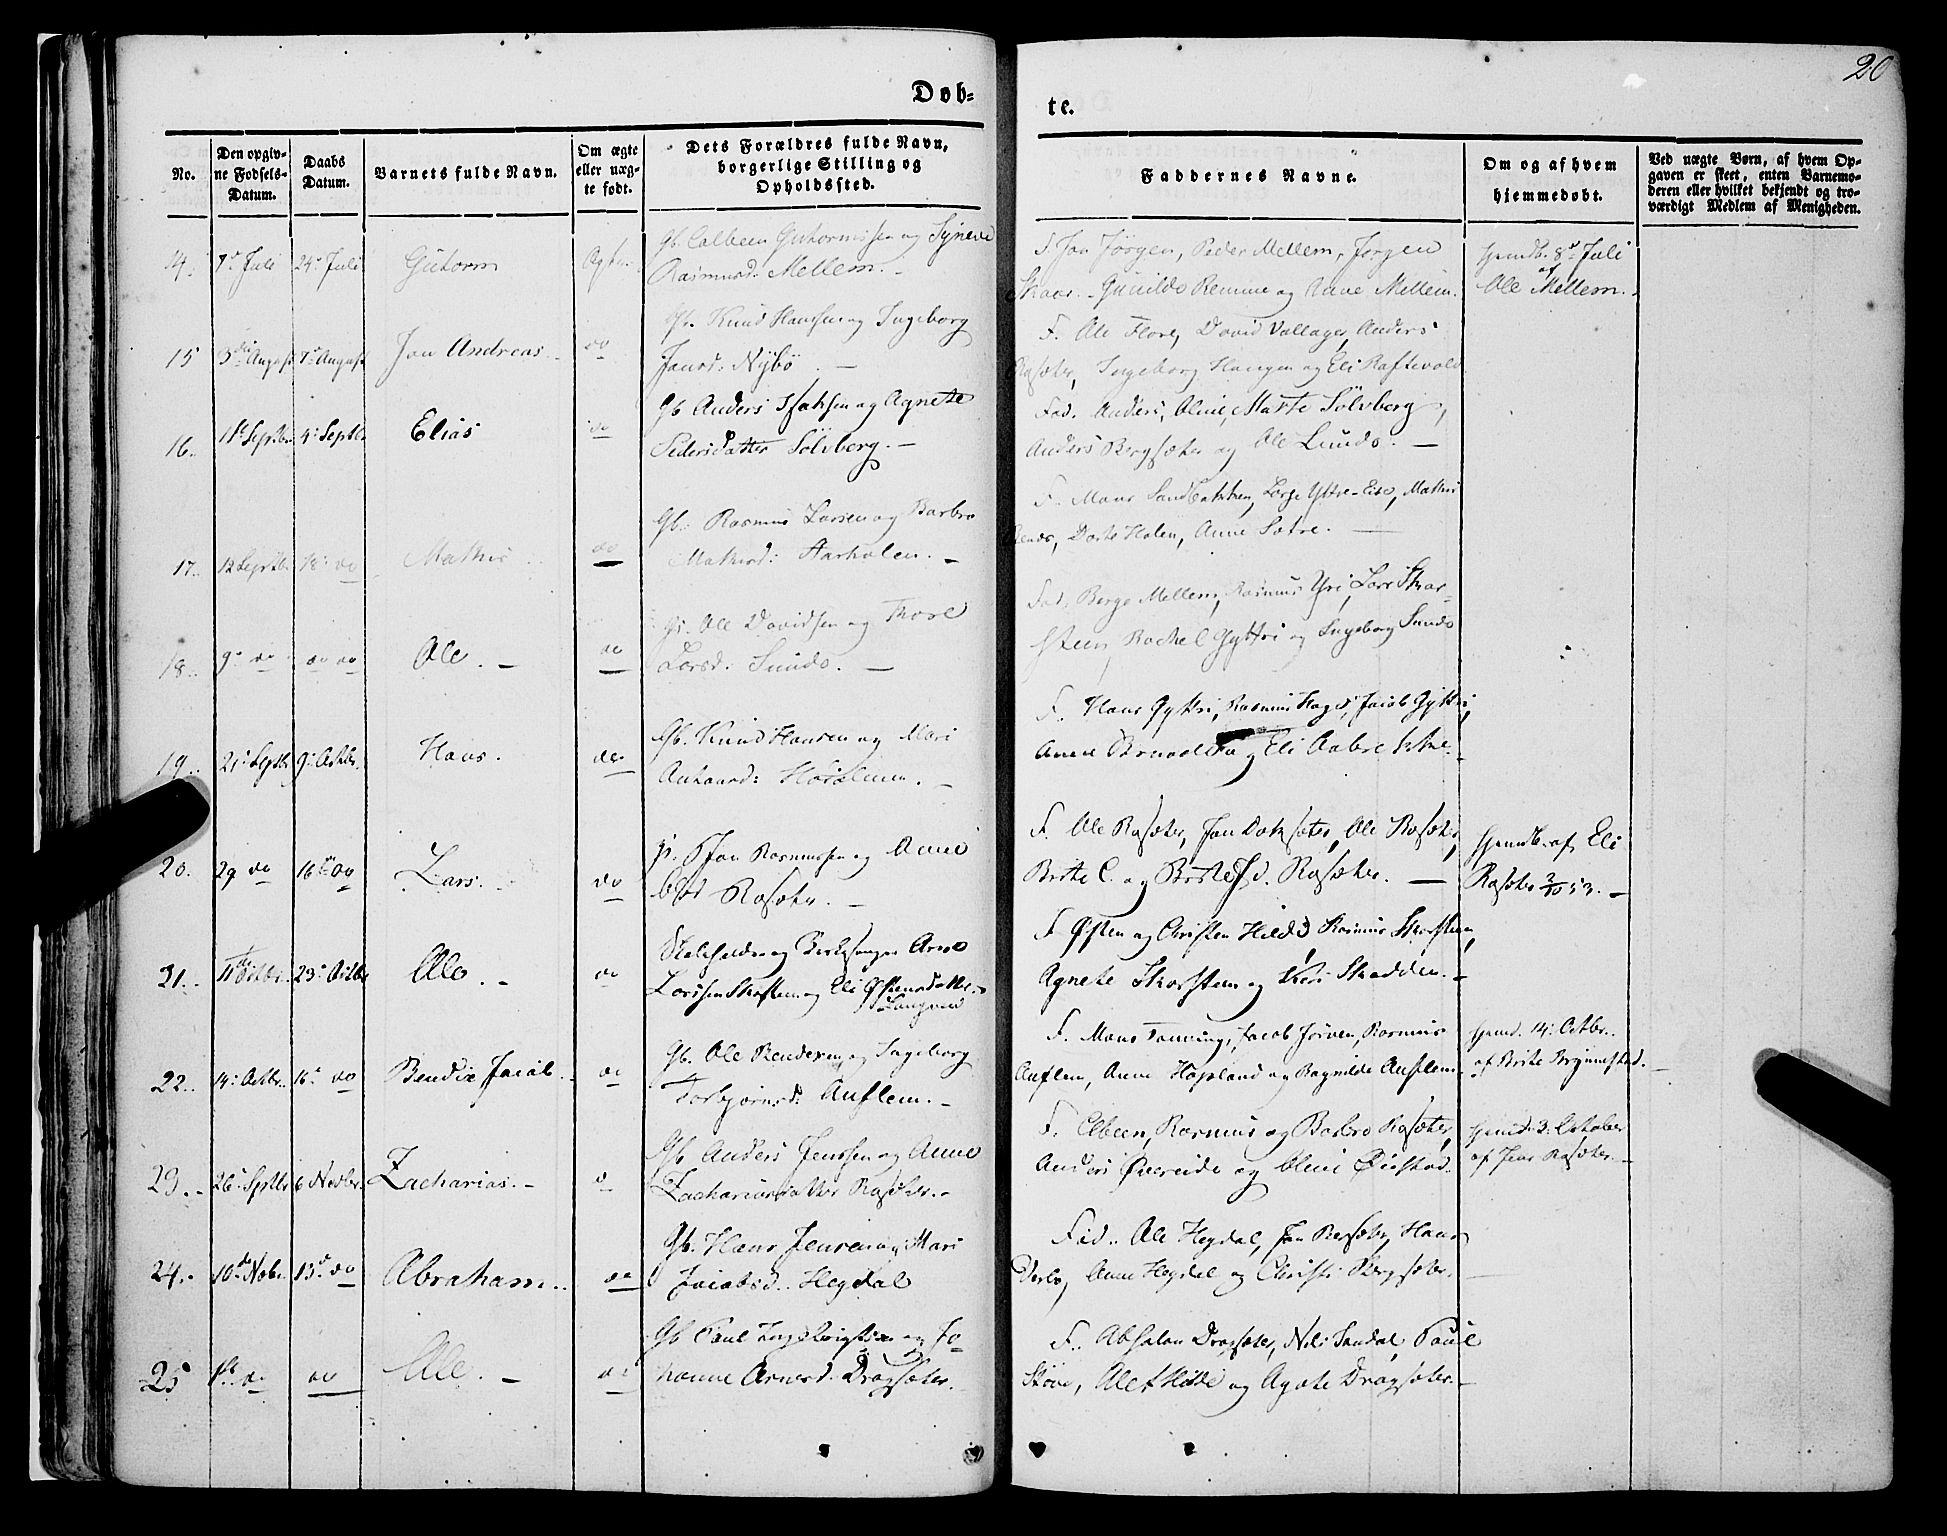 20
Døb-
te.
No.
Den opgiv-
ne Fødsels-
Datum.
Daabs
Datum.
Barnets fulde Navn.
Om ægte
eller uæg-
te født.
Dets Forældres fulde Navn,
borgerlige Stilling og
Opholdssted.
Faddernes Navne.
Om og af hvem
hjemmedøbt.
Ved uægte Børn, af hvem Op-
gaven er skeet, enten Barnemo-
deren eller hvilket bekjendt og tro-
værdigt Medlem af Menigheden.
14. 7de Juli 24de Juli Guttorm Ægte
Gb. Colbeen Guttormssen og Synneve
Rasmusd: Mellem.
F. Jon Jörgen, Peder Mellem, Jørgen
Skaar. Gunilde Remme og Anne Mellem.
Hjemdb. 8de Juli
af
Ole Mellem.
15 3die August 7de August Jon Andreas. do
Gb. Knud Hanssen og Ingeborg
Jonsd: Nybö.
F. Ole Flore, David Vollager, Anders
Rosæter, Ingeborg Haugen og Eli Raftevold
16. 1ste Septbr. 4de Septbr. Elias do
Gb Anders Isaksen og Agnete
Pedersdatter Sölvberg. -
Fad. Anders, Oline, Marte Sölvberg,
Anders Bergsæter og Ole Lunde. -
17. 12 Septbr. 18de do Mathis do
Gb. Rasmus Larsen og Barbro
Mathisd: Aarholen. -
F. Mons Sandbakken, Mathis
Dorte Holen, Anne Sætre. -
18. 9de do do do Ole. - do
Gb. Ole Davidsen og Thore
Larsd: Sunde. -
Fad. Børge Mellem, Rasmus Yri, Lars Skar-
steen, Rachel Gyttri og Ingeborg Sunde
19. 21de Septbr 9de Octbr. Hans. do
Gb. Knud Hansen og Mari
F. Hans Gyttri, Rasmus Hage, Jacob Gyttri,
og Eli Aabrekke.
20. 29 do 16de do Lars. do
Rasmussen og Anne
Rosæter. -
F. Ole Rosæter, Jon Doksæter, Ole Rosæter,
Brite C. og Brite J.d. Rosæter. -
Hjemdb. af Eli
Rosæter 2/10 53. -
21. 11te Octbr. 23de Octbr Ole. - do
Skoleholder og Kirkesanger Arne
Larssen Skarsteen og Eli Østensdatter
F. Østen og Christen Hilde, Rasmus Skarsteen,
Agnete Skarsteen og Kari Skadden. -
22. 14de Octbr. 16de do Bendix Jacob. do
Gb. Ole Bendixen og Ingeborg
Torbjørnsd: Auflem. -
F. Mons Tonning, Jacob Jörven, Rasmus
Auflem, Anne Hopland og Ragnilde Auflem.
Hjemd. 14de Octbr.
af Brite Brynestad. -
23. - 26de Septbr 6 Novbr. Zacharias. - do
Gb Anders Jenssen og Anne
Zachariasdatter Rosæter. -
F. Elbeen, Rasmus og Barbro Rosæter,
Anders Øvereide og Oline Øiestad.
Hjemd. 3. October
af Jens Rosæter. -
24. - 10de Novbr. 13de do Abraham. do
Gb. Hans Jensen og Mari
Jacobsd. Hegdal
Fad. Ole Hegdal, Jon Bersæter, Hans
Anne Hegdal og Christi Bergsæter.
25 1ste do do Ole. - do
Gb Paul Ingebrigtsen og Jo-
hanne Arnesd. Dragsæter.
F. Absalon Dragsæter, Nils Sandal, Paul
Støve, Ole Hilde og Agate Dragsæter. -